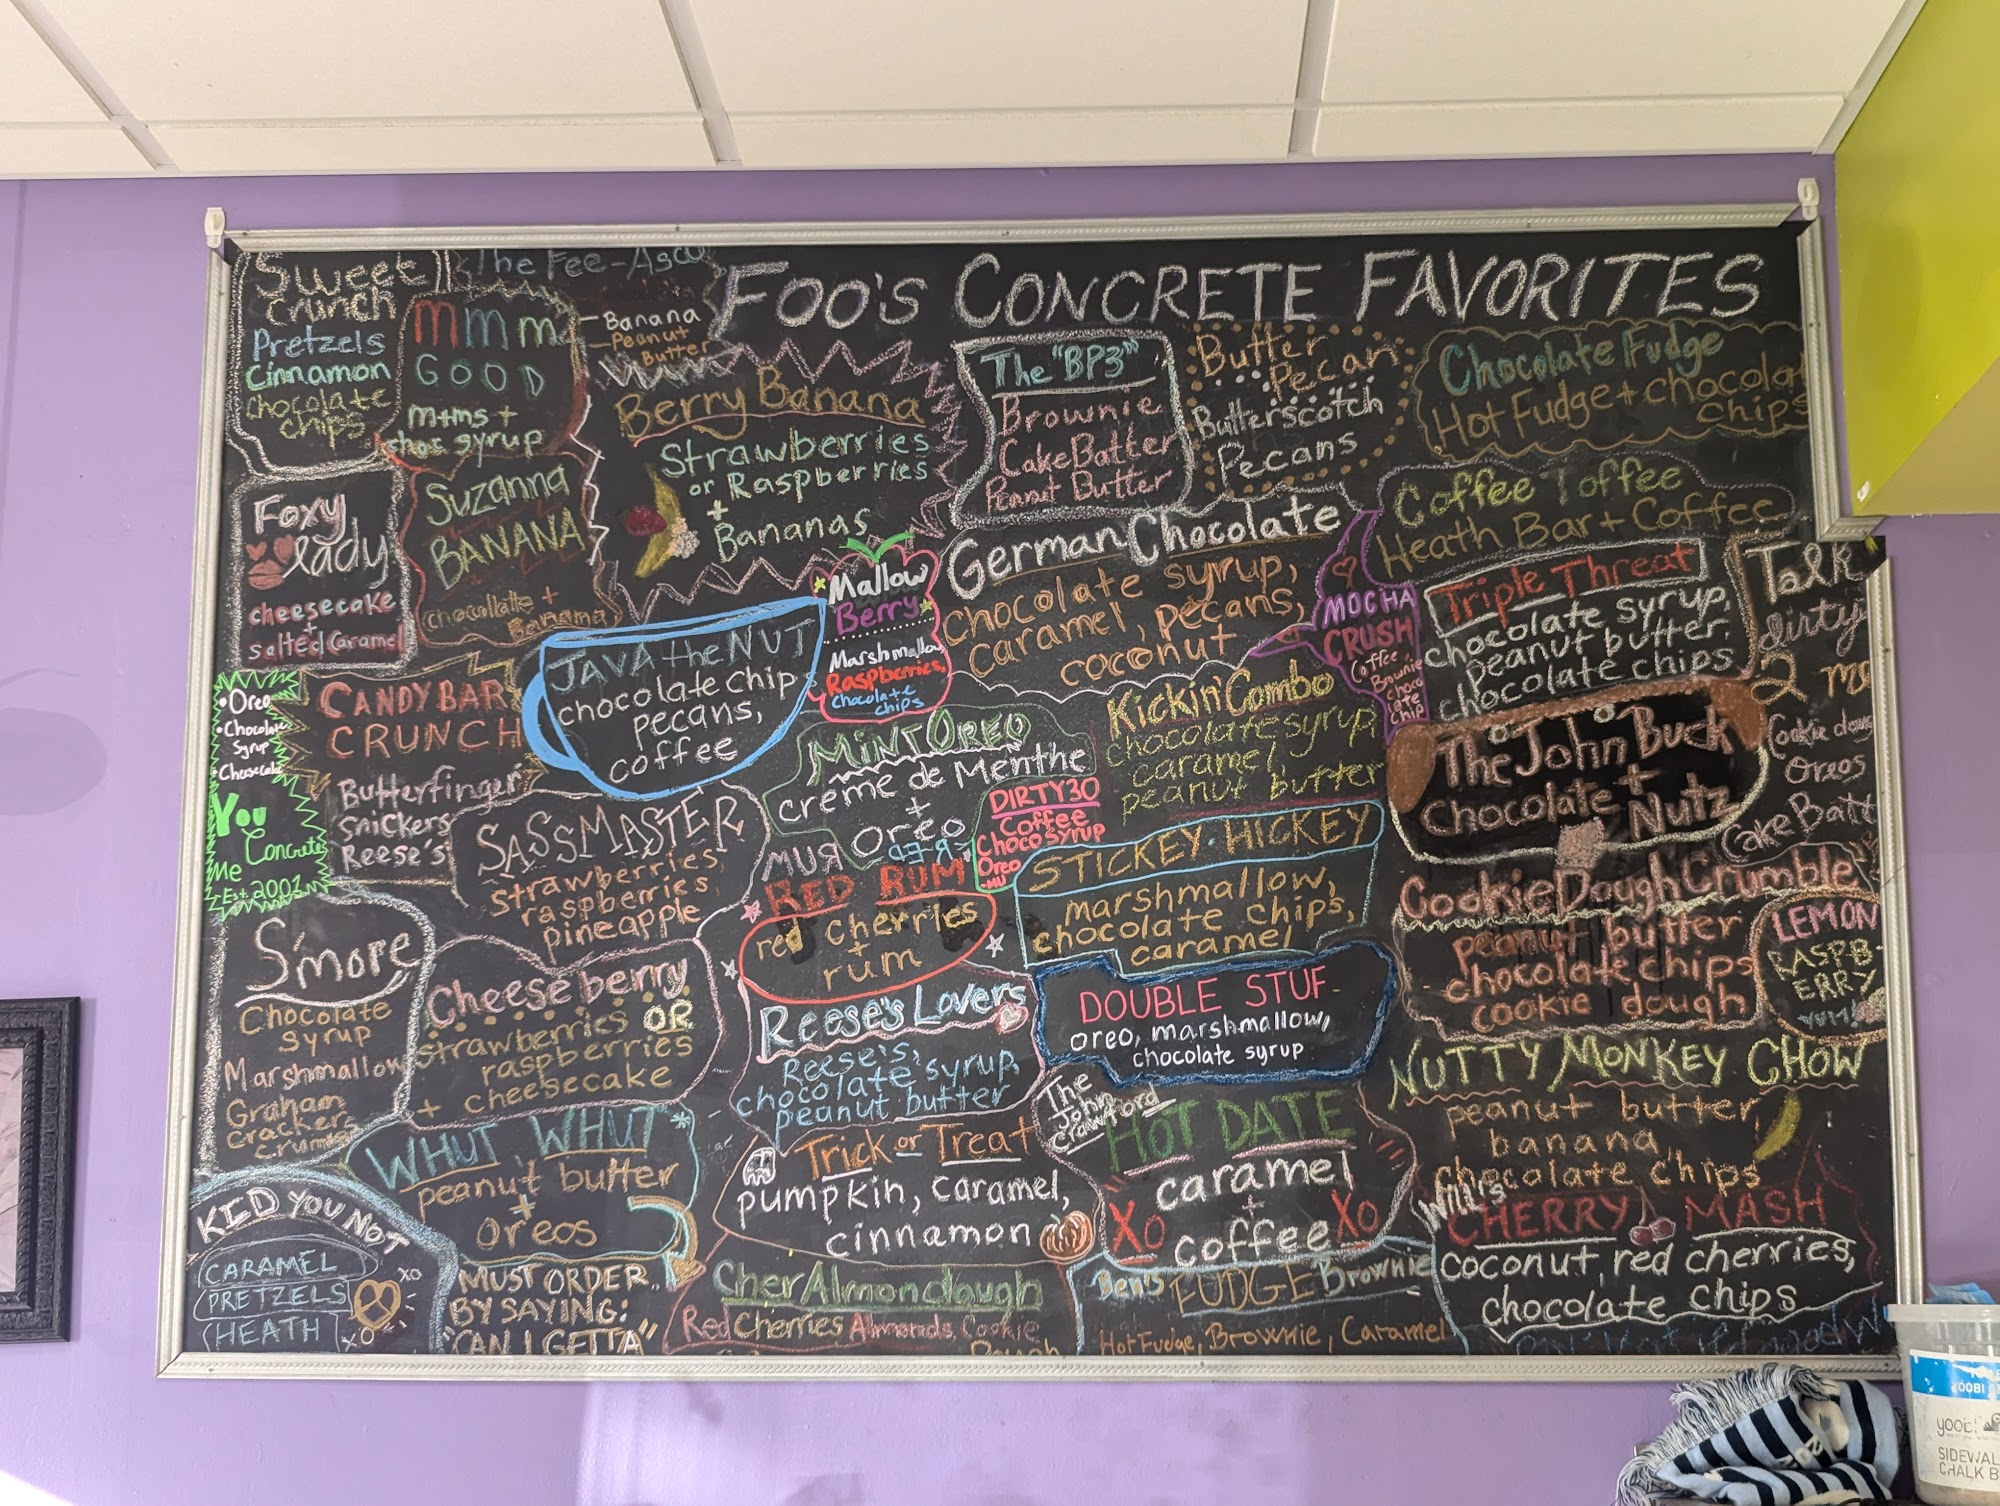 FOO'S CONCRETE FAVORITES
Sweet
Crunch
Pretzels
Cinnamon
Chocolate
chips
The Fee-Asco
- Banana
- Peanut
Butter
mmm
GOOD
m+ms +
choc syrup
Berry Banana
Strawberries
or Raspberries
+
Bananas
The "BP3"
Brownie
Cake Batter
Peanut Butter
Butter
Pecan
Butterscotch
Pecans
Chocolate Fudge
Hot Fudge + chocolat
chips
Foxy
lady
cheesecake
+
salted Caramel
Suzanna
BANANA
chocolate +
Banana
Mallow
Berry
Marshmallow
Raspberries,
Chocolate
chips
German Chocolate
chocolate syrup,
caramel, pecans,
coconut
Coffee Toffee
Heath Bar + Coffee
MOCHA
CRUSH
Coffee,
Brownie
choco
late
chip
Triple Threat
chocolate syrup,
peanut butter,
chocolate chips
Talk
dirty
2 me
Cookie dough
Oreos
Cake Batt
• Oreo
• Chocolate
Syrup
• Cheesecake
You
Concrete
Me
-Est. 2001
CANDY BAR
CRUNCH
Butterfinger
Snickers
Reese's
JAVA the NUT
chocolate chip,
pecans,
coffee
MINT OREO
créme de Menthe
+
Oreo
Kickin' Combo
chocolate syrup,
caramel,
peanut butter
The John Buck
Chocolate +
Nutz
SASSMASTER
strawberries,
raspberries,
pineapple
DIRTY 30
Coffee
Choco Syrup
Oreo
RED RUM
red cherries
+
rum
STICKEY-HICKEY
marshmallow,
chocolate chips,
caramel
Cookie Dough Crumble
peanut butter
chocolate chips
cookie dough
LEMON
RASPB-
ERRY
YUM!
S'more
Chocolate
Syrup
Marshmallow
Graham
crackers
crumbs
Cheeseberry
strawberries OR
raspberries
+ cheesecake
Reese's Lovers
Reese's,
chocolate syrup,
peanut butter
DOUBLE STUF
oreo, marshmallow,
chocolate syrup
NUTTY MONKEY CHOW
peanut butter,
banana
chocolate chips
WHUT WHUT*
peanut butter
+
oreos
MUST ORDER
BY SAYING:
"CAN I GETTA"
Trick or Treat
pumpkin, caramel,
cinnamon
The
John
Crawford
HOT DATE
caramel
+
coffee
XO
XO
Will's
CHERRY MASH
coconut, red cherries,
chocolate chips
KID YOU NOT
CARAMEL
PRETZELS
HEATH
XO
XO
CherAlmondough
Red Cherries Almonds, Cookie
Dough
Ben's FUDGE Brownie
Hot Fudge, Brownie, Caramel
YOOBI
yoobi
SIDEWAL
CHALK B